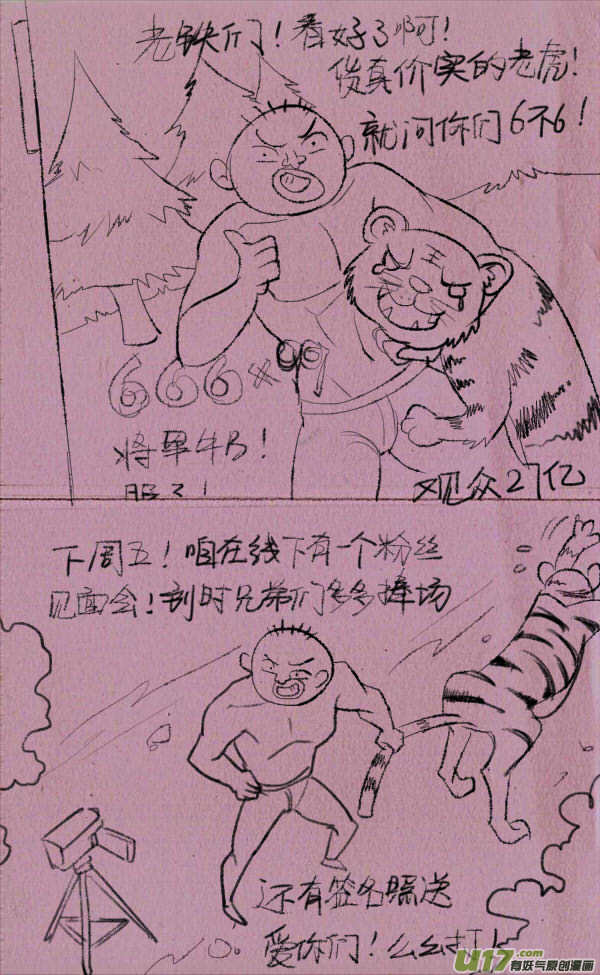 老铁们！看好了啊！
货真价实的老虎！
就问你们6不6！
666×99
将军牛B！
服了！
观众27亿
下周五！咱在线下有一个粉丝
见面会！到时兄弟们多多捧场
还有签名照送
爱你们！么么打
U17.com
有妖气原创漫画